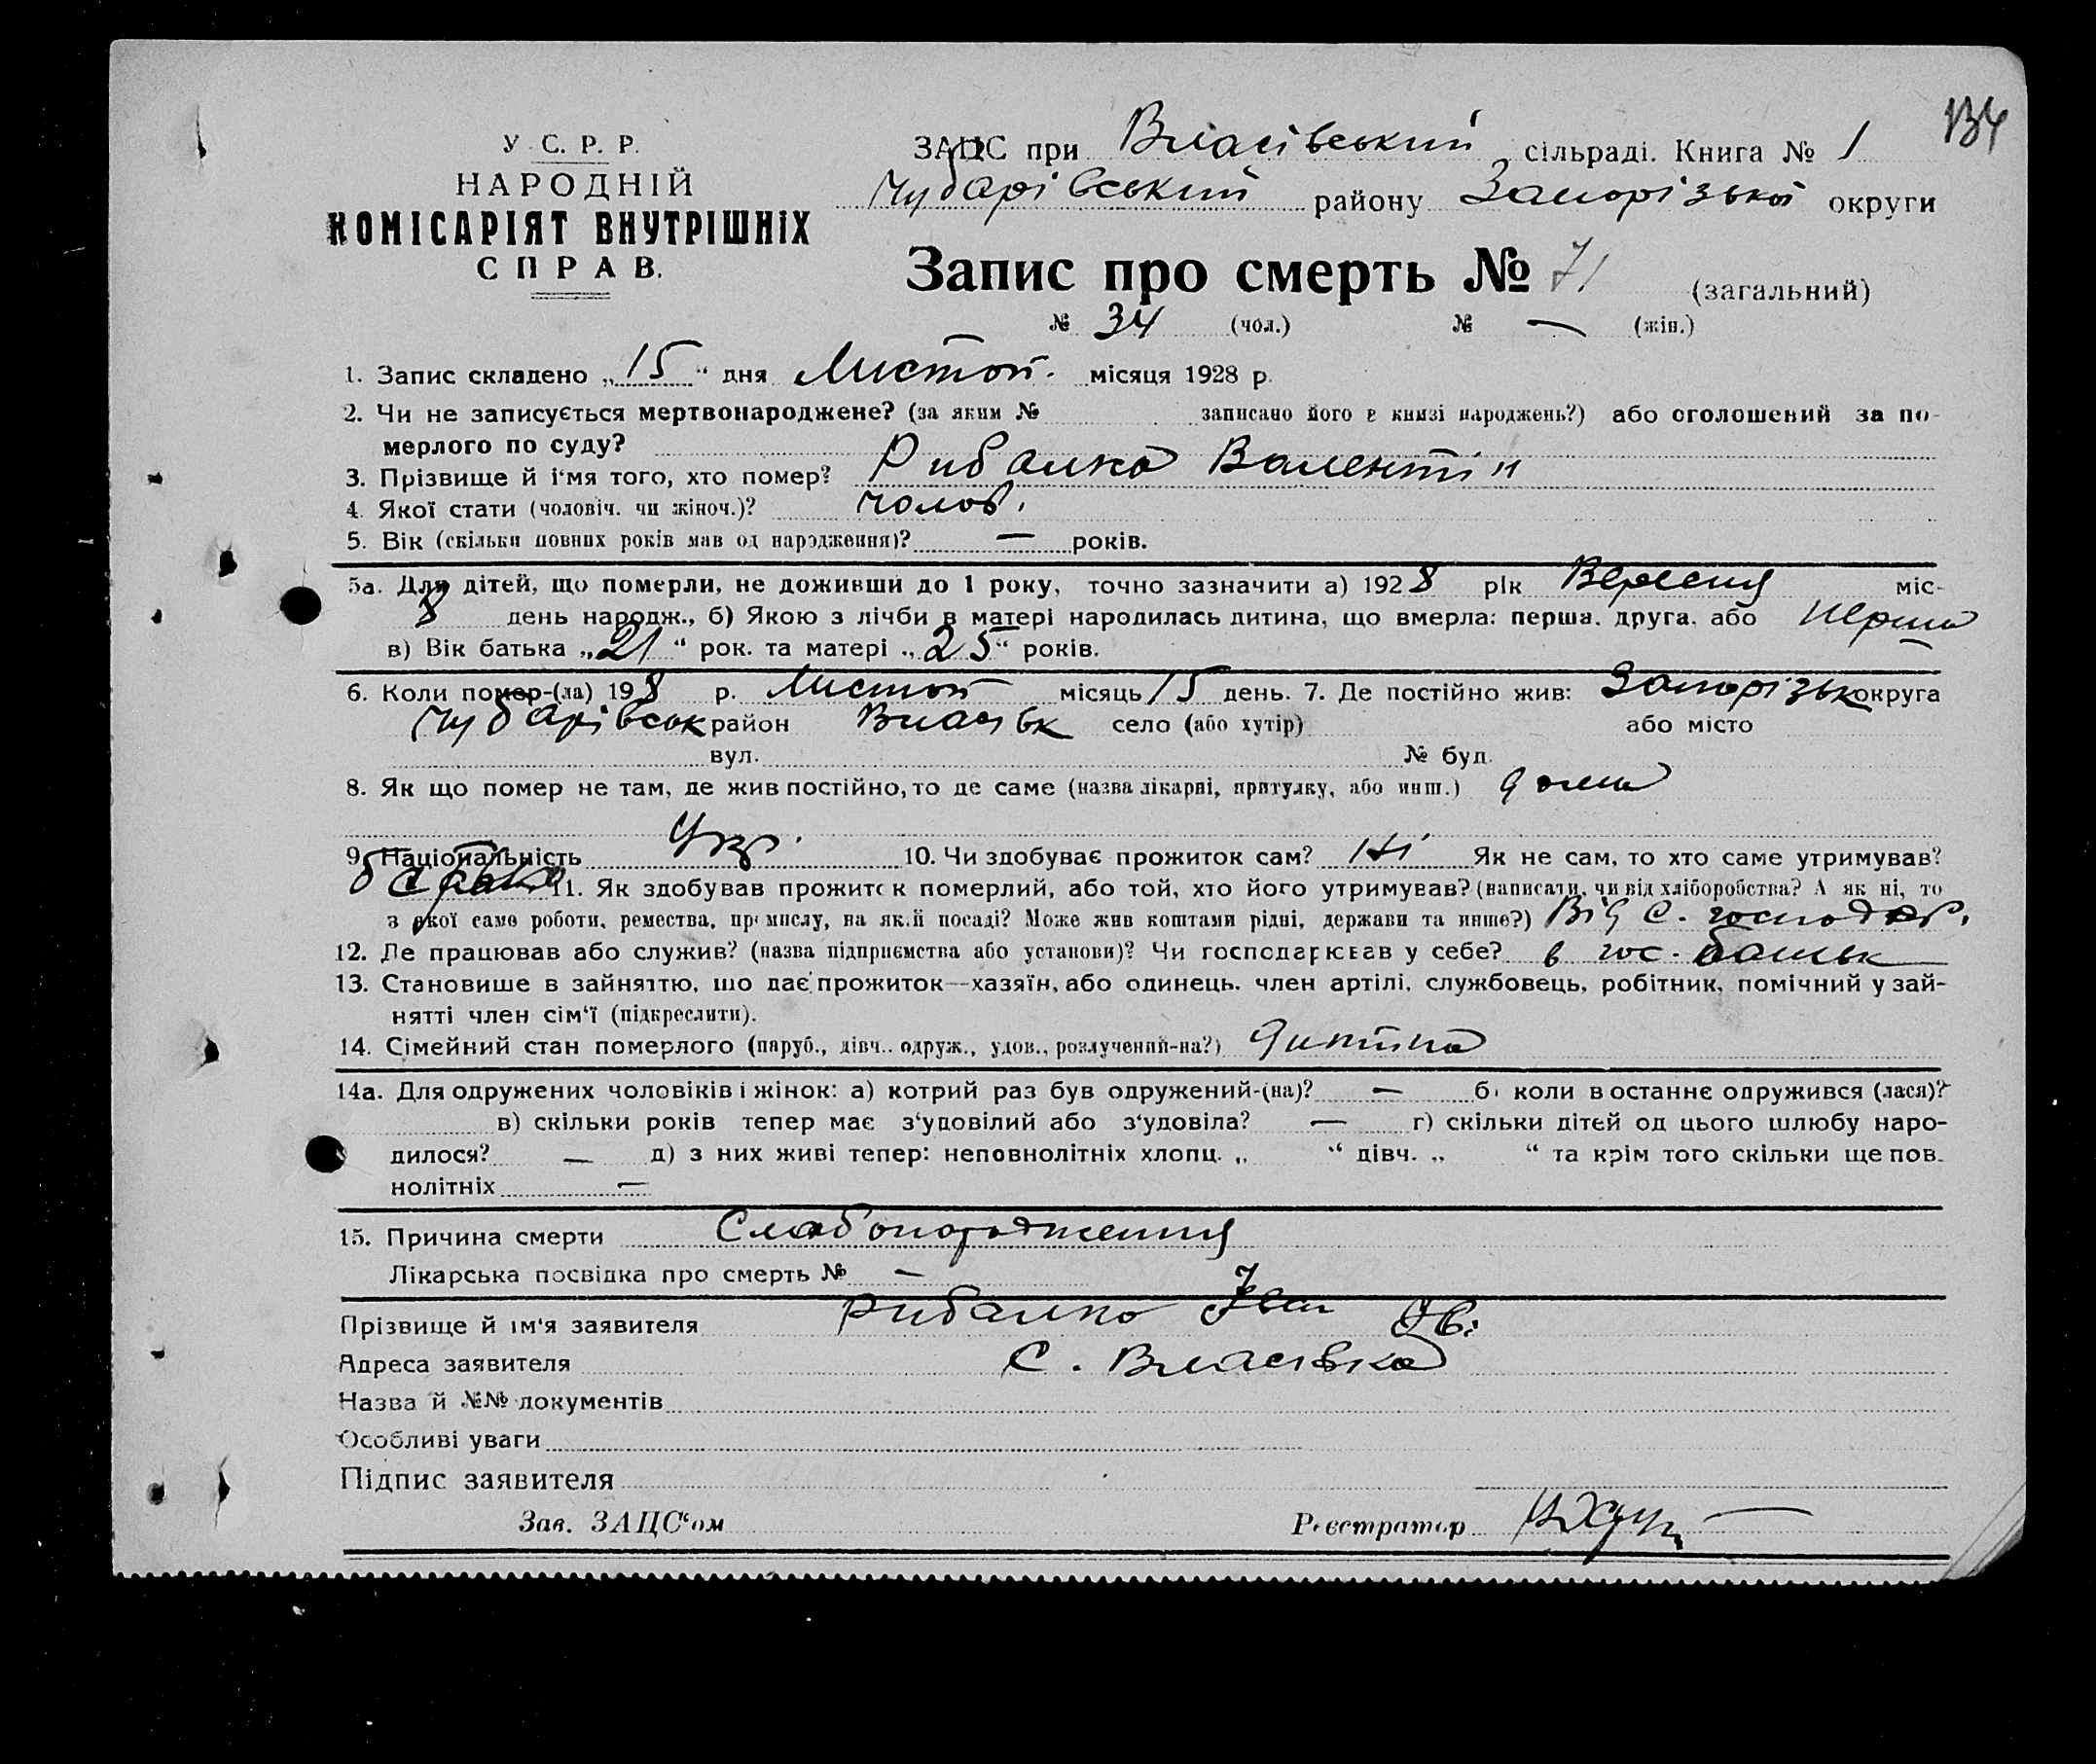 134
У. С. Р. Р.
НАРОДНІЙ
КОМІСАРІЯТ ВНУТРІШНІХ
СПРАВ.
ЗАЦС при Власівський сільраді. Книга № 1
Чубарівський району Запорізької округи
Запис про смерть № 71 (загальний)
№ 34 (чол.) № — (жін.)
1. Запис складено „15“ дня Листоп. місяця 1928 р.
2. Чи не записується мертвонароджене? (за яким № записано його в книзі народжень?) або оголошений за по-
мерлого по суду?
3. Прізвище й і‘мя того, хто помер? Рибалка Валентін
4. Якої стати (чоловіч. чи жіноч.)? чолов.
5. Вік (скільки повних років мав од народження)? — років.
5а. Для дітей, що померли, не доживши до 1 року, точно зазначити а) 1928 рік Вересня міс-
8 день народж., б) Якою з лічби в матері народилась дитина, що вмерла: перша. друга. або перша
в) Вік батька „21“ рок. та матері „25“ років.
6. Коли помер-(ла) 198 р. Листоп місяць 15 день. 7. Де постійно жив: Запорізьк округа
Чубарівськ район Власівк село (або хутір) або місто
вул. № буд.
8. Як що помер не там, де жив постійно, то де саме (назва лікарні, притулку, або инш.) дома
9. Національність Укр. 10. Чи здобуває прожиток сам? Ні Як не сам, то хто саме утримував?
11. Як здобував прожиток померлий, або той, хто його утримував? (написати, чи від хліборобства? А як ні, то
з якої саме роботи, ремества, промислу, на якій посаді? Може жив коштами рідні, держави та инше?) Від с. господар.
12. Де працював або служив? (назва підприємства або установи)? Чи господарював у себе? в гос. батьк
13. Становище в зайняттю, що дає прожиток—хазяїн, або одинець. член артілі, службовець, робітник, помічний у зай-
нятті член сім‘ї (підкреслити).
14. Сімейний стан померлого (паруб., дівч.. одруж., удов., розлучений-на?) дитина
14а. Для одружених чоловіків і жінок: а) котрий раз був одружений-(на)? — б) коли в останнє одружився (лася)?
в) скільки років тепер має з‘удовілий або з‘удовіла? — г) скільки дітей од цього шлюбу наро-
дилося? — д) з них живі тепер: неповнолітніх хлопц. „ “ дівч. „ “ та крім того скільки ще пов.
нолітніх —
15. Причина смерти Слабонородження
Лікарська посвідка про смерть № —
Прізвище й ім‘я заявителя Рибалко Іван Ів.
Адреса заявителя С. Власівка
Назва й №№ документів
Особливі уваги
Підпис заявителя
Зав. ЗАЦС‘ом Реєстратор